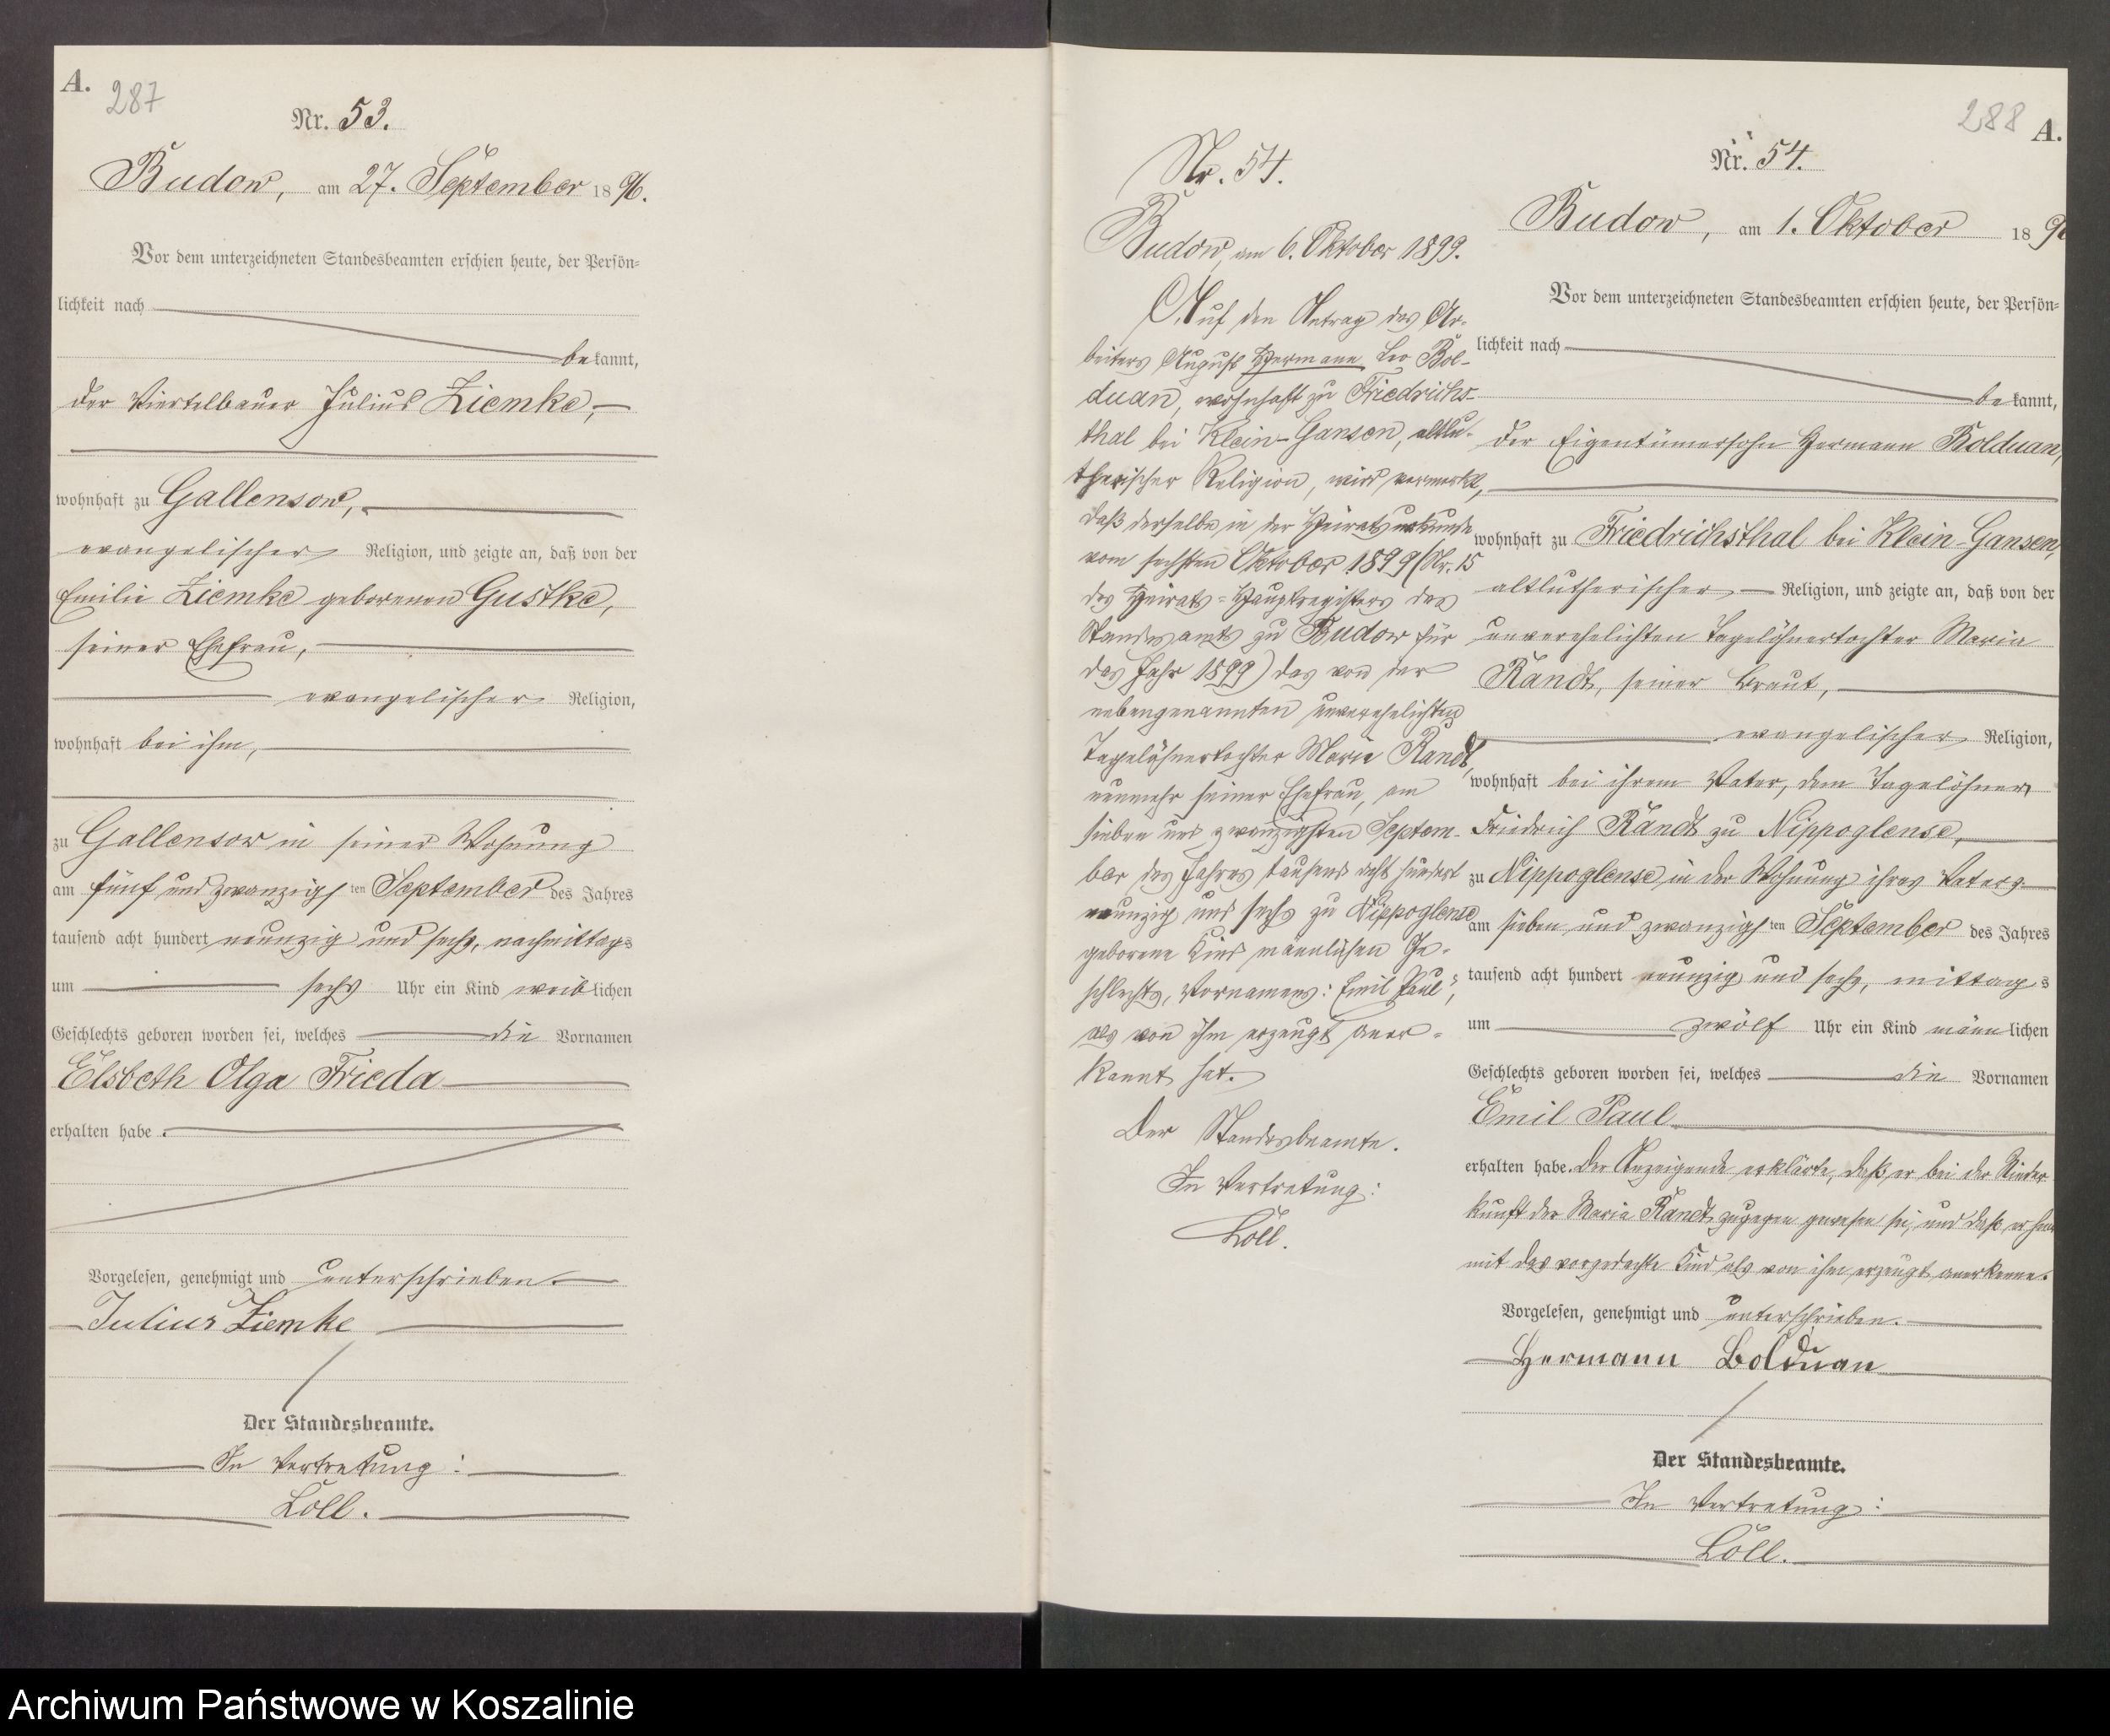 A.
287
Nr. 53.
Budow, am 27. September 1896.
Vor dem unterzeichneten Standesbeamten erschien heute, der Persön=
lichkeit nach
bekannt,
der Viertelbauer Julius Ziemke,
wohnhaft zu Gallensow,
evangelischer Religion, und zeigte an, daß von der
Emilie Ziemke geborenen Gustke,
seiner Ehefrau,
evangelischer Religion,
wohnhaft bei ihm,
zu Gallensow in seiner Wohnung
am fünf und zwanzigsten September des Jahres
tausend acht hundert neunzig und sechs, nachmittags
um sechs Uhr ein Kind weiblichen
Geschlechts geboren worden sei, welches die Vornamen
Elsbeth Olga Frieda
erhalten habe.
Vorgelesen, genehmigt und unterschrieben.
Julius Ziemke
Der Standesbeamte.
In Vertretung:
Löll.
Nr. 54.
Budow, am 6. Oktober 1899.
Auf den Antrag des Ar-
beiters August Hermann Leo Bol-
duan, wohnhaft zu Friedrichs-
thal bei Klein-Gansen, altlu-
therischer Religion, wird vermerkt,
daß derselbe in der Heiratsurkunde
vom sechsten Oktober 1899 (Nr. 15
des Heirats-Hauptregisters des
Standesamts zu Budow für
das Jahr 1899) das von der
nebengenannten unverehelichten
Tagelöhnertochter Maria Randt,
nunmehr seiner Ehefrau, am
sieben und zwanzigsten Septem-
ber des Jahres tausend acht hundert
neunzig und sechs zu Nippoglense
geborene Kind männlichen Ge-
schlechts, Vornamens: "Emil Paul",
als von ihm erzeugt aner-
kannt hat.
Der Standesbeamte.
In Vertretung:
Löll.
288 A.
Nr. 54.
Budow, am 1. Oktober 189
Vor dem unterzeichneten Standesbeamten erschien heute, der Persön=
lichkeit nach
bekannt,
der Eigentümersohn Hermann Bolduan,
wohnhaft zu Friedrichsthal bei Klein-Gansen,
altlutherischer Religion, und zeigte an, daß von der
unverehelichten Tagelöhnertochter Maria
Randt, seiner Braut,
evangelischer Religion,
wohnhaft bei ihrem Vater, dem Tagelöhner
Friedrich Randt zu Nippoglense,
zu Nippoglense in der Wohnung ihres Vaters
am sieben und zwanzigsten September des Jahres
tausend acht hundert neunzig und sechs, mittags
um zwölf Uhr ein Kind männlichen
Geschlechts geboren worden sei, welches die Vornamen
Emil Paul
erhalten habe. Der Anzeigende erklärte, daß er bei der Nieder
kunft der Maria Randt zugegen gewesen sei, und daß er hier
mit das vorgedachte Kind als von ihm erzeugt anerkenne.
Vorgelesen, genehmigt und unterschrieben.
Hermann Bolduan
Der Standesbeamte.
In Vertretung:
Löll.
Archiwum Państwowe w Koszalinie